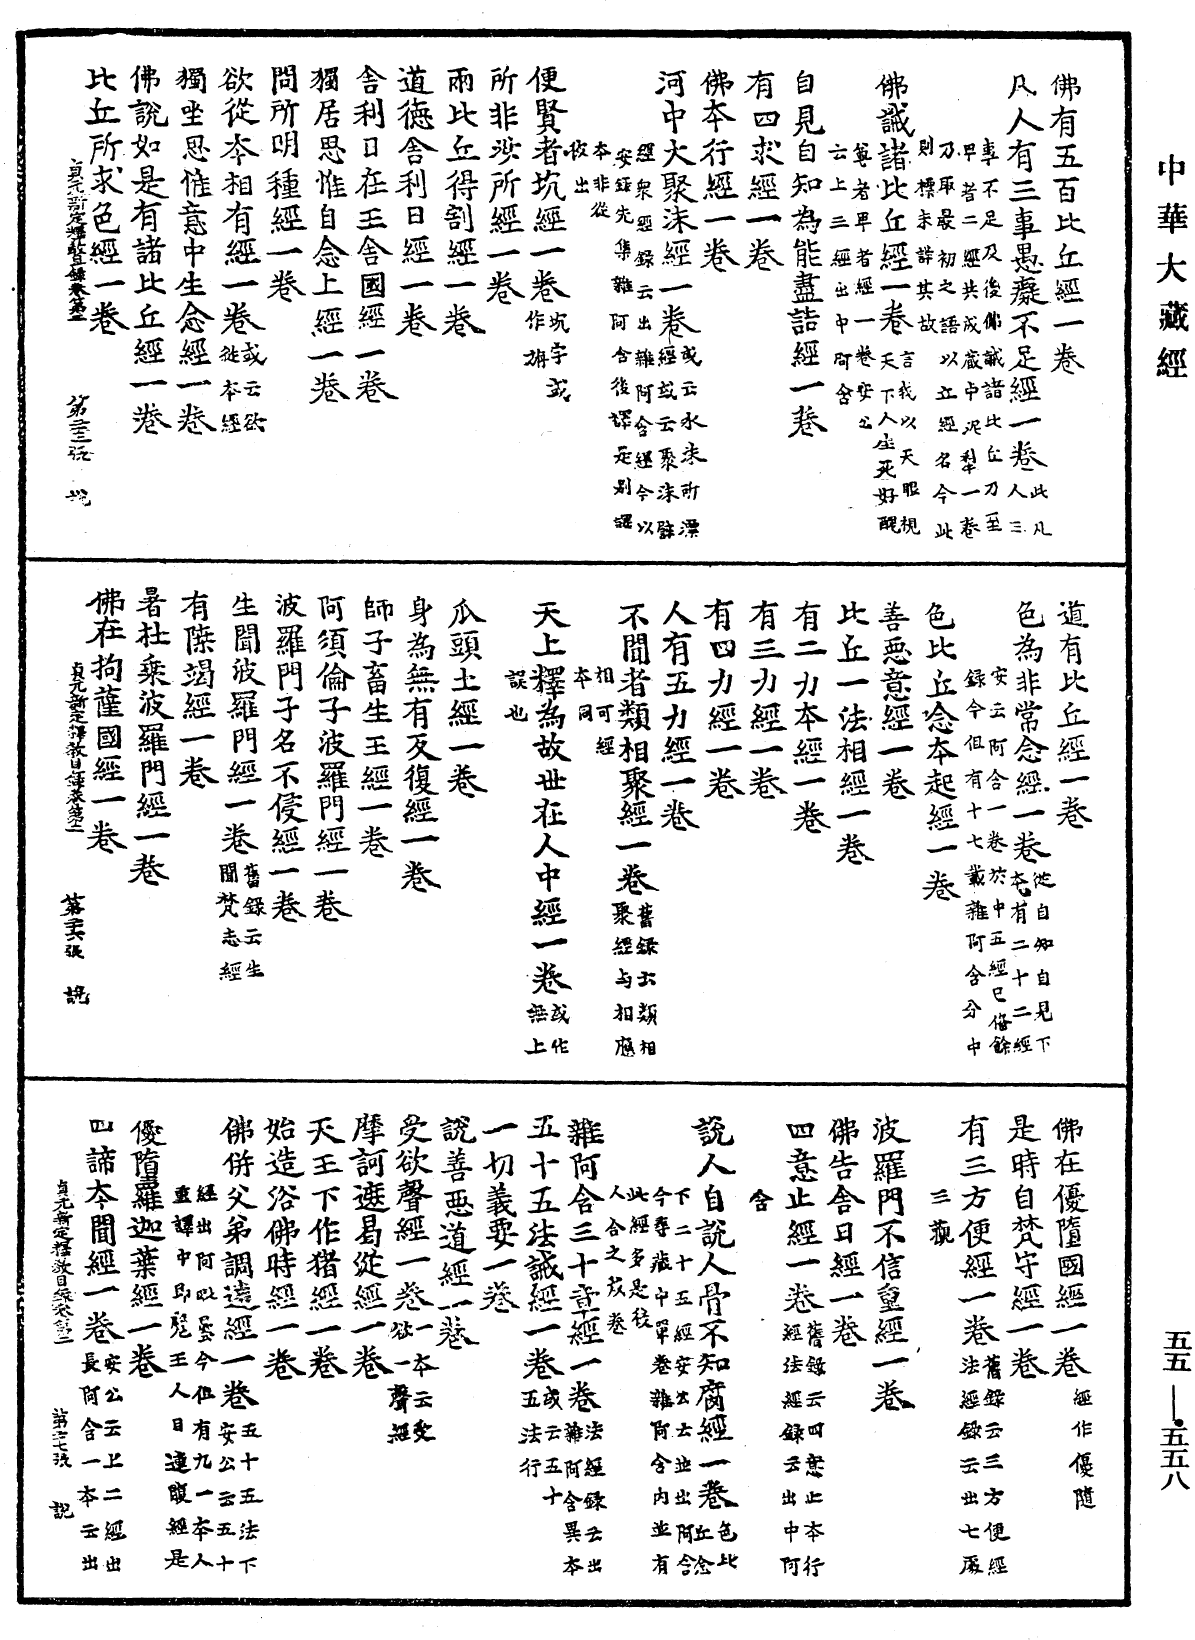 中華大藏經
佛有五百比丘經一卷
凡人有三事愚癡不足經一卷此凡人三
事不足及後佛誡諸比丘乃至
卑者二經共成藏中泥犁一卷
乃取最初之語以立經名今此
則標未詳其故
佛誡諸比丘經一卷言我以天眼視天下人生死好醜
尊者卑者經一卷安公
云上三經出中阿含
自見自知為能盡詰經一卷
有四求經一卷
佛本行經一卷
河中大聚沫經一卷或云水沫所漂經或云聚沫譬
經衆經錄云出雜阿含經今以
安錄先集雜阿含後譯定別譯
本非從
彼出
便賢者坑經一卷坑字或作旃
所非汝所經一卷
兩比丘得割經一卷
道德舍利日經一卷
舍利日在王舍國經一卷
獨居思惟自念上經一卷
問所明種經一卷
欲從本相有經一卷或云欲從本經
獨坐思惟意中生念經一卷
佛說如是有諸比丘經一卷
比丘所求色經一卷
貞元新定釋教目錄卷第二　第二十五張　說
道有比丘經一卷
色為非常念經一卷從自知自見下本有二十二經
安云阿含一卷於中五經已備餘
錄今但有十七載雜阿含分中
色比丘念本起經一卷
善惡意經一卷
比丘一法相經一卷
有二力本經一卷
有三力經一卷
有四力經一卷
人有五力經一卷
不聞者類相聚經一卷舊錄云類相聚經与相應
相可經
本同
天上釋為故世在人中經一卷或作無上
誤也
爪頭土經一卷
身為無有反復經一卷
師子畜生王經一卷
阿須倫子波羅門經一卷
波羅門子名不侵經一卷
生聞波羅門經一卷舊錄云生聞梵志經
有𨻶竭經一卷
暑杜乘波羅門經一卷
佛在拘薩國經一卷
貞元新定釋教目錄卷第二　第二十六張　說
佛在優隨國經一卷經作優隨
是時自梵守經一卷
有三方便經一卷舊錄云三方便經法經錄云出七處
三觀
波羅門不信重經一卷
佛告舍日經一卷
四意止經一卷舊錄云四意止本行經法經錄云出中阿
含
說人自說人骨不知腐經一卷色比丘念
下二十五經安公云並出阿含
今尋藏中單卷雜阿含內並有
此經多是後
人合之成卷
雜阿含三十章經一卷法經錄云出雜阿含異本
五十五法誡經一卷或云五十五法行
一切義要一卷
說善惡道經一卷
受欲聲經一卷一本云受欲一聲經
摩訶遮曷從經一卷
天王下作猪經一卷
始造浴佛時經一卷
佛併父弟調達經一卷五十五法下安公云五十
經出阿毗曇今但有九一本人
重譯中即髮王人日連腹經是
優隨羅迦葉經一卷
四諦本聞經一卷安公云上二經出長阿含一本云出
貞元新定釋教目錄卷第二　第二十七張　說
五五—五五八